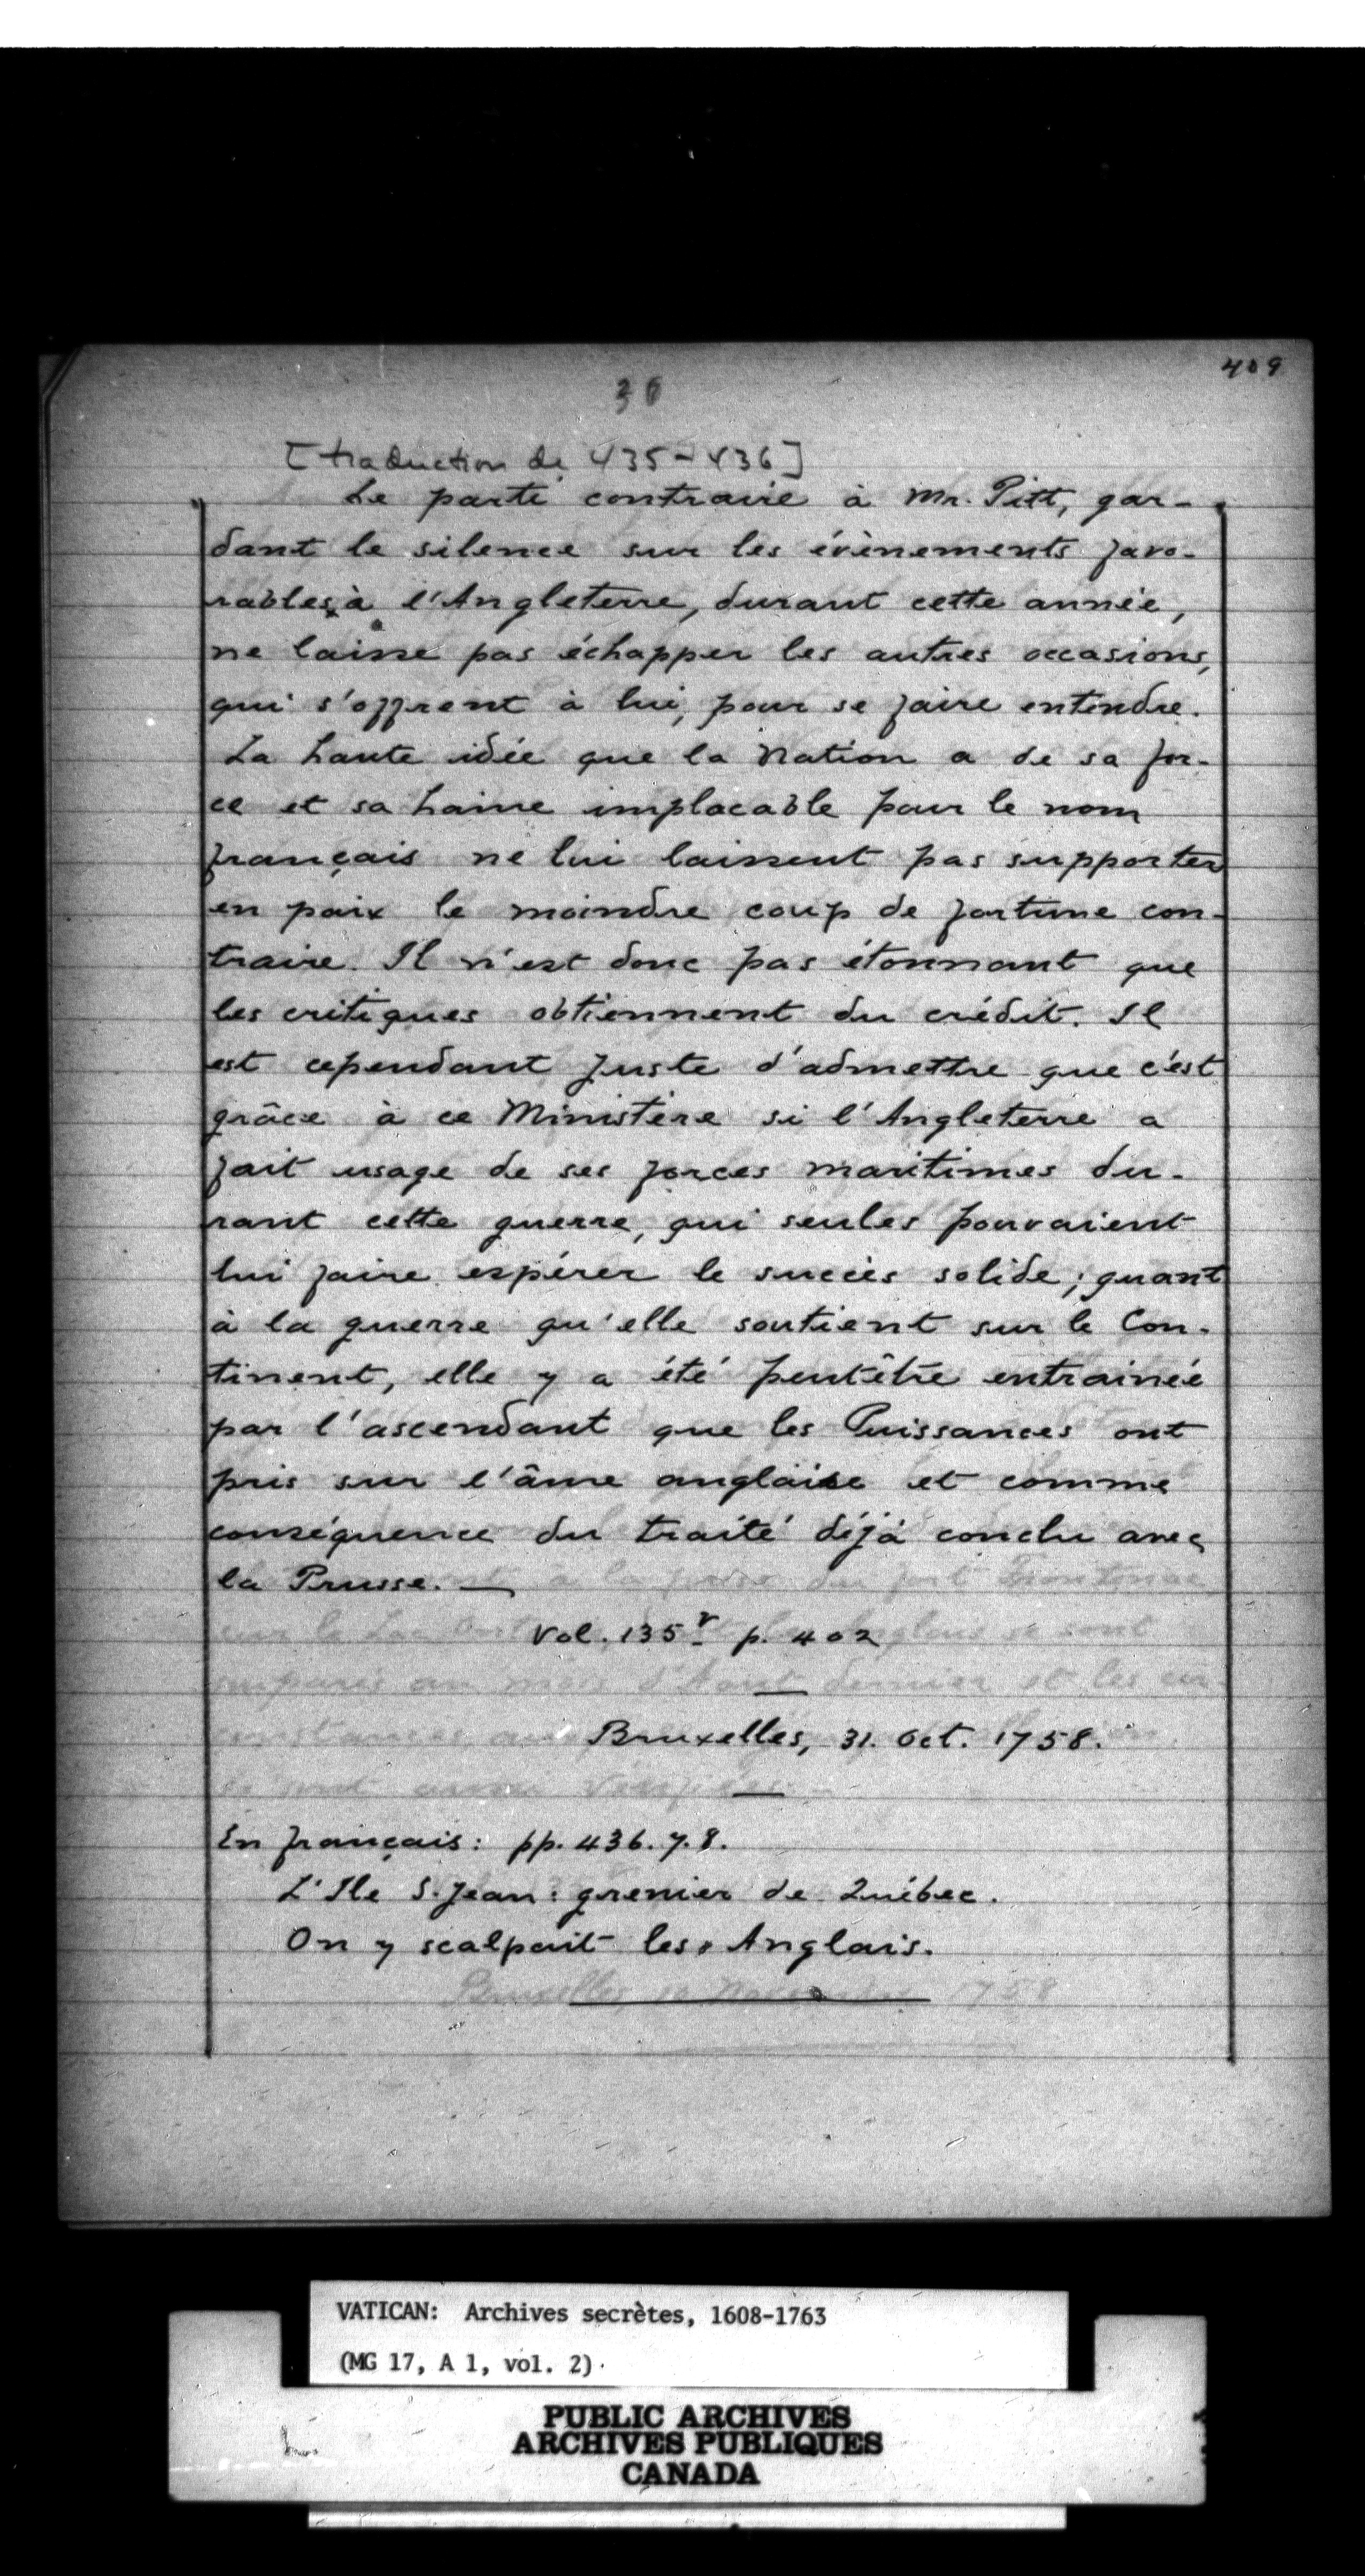 409
36
[traduction de 435-436]
Le parti contraire à Mr. Pitt, gar-
dant le silence sur les évènements favo-
rables à l'Angleterre, durant cette année,
ne laisse pas échapper les autres occasions,
qui s'offrent à lui, pour se faire entendre.
La haute idée que la Nation a de sa for-
ce et sa haine implacable pour le nom
français ne lui laissent pas supporter
en paix le moindre coup de fortune con-
traire. Il n'est donc pas étonnant que
les critiques obtiennent du crédit. Il
est cependant juste d'admettre que c'est
grâce à ce Ministère si l'Angleterre a
fait usage de ses forces maritimes du-
rant cette guerre, qui seules pouvaient
lui faire espérer le succès solide; quant
à la guerre qu'elle soutient sur le Con-
tinent, elle y a été peutêtre entrainée
par l'ascendant que les Puissances ont
pris sur l'âme anglaise et comme
conséquence du traité déjà conclu avec
la Prusse. —
Vol. 135 v p. 402
Bruxelles, 31. Oct. 1758.
En français: pp. 436. 7. 8.
L'Ile S. Jean: grenier de Québec.
On y scalpait les Anglais.
VATICAN: Archives secrètes, 1608-1763
(MG 17, A 1, vol. 2)
PUBLIC ARCHIVES
ARCHIVES PUBLIQUES
CANADA